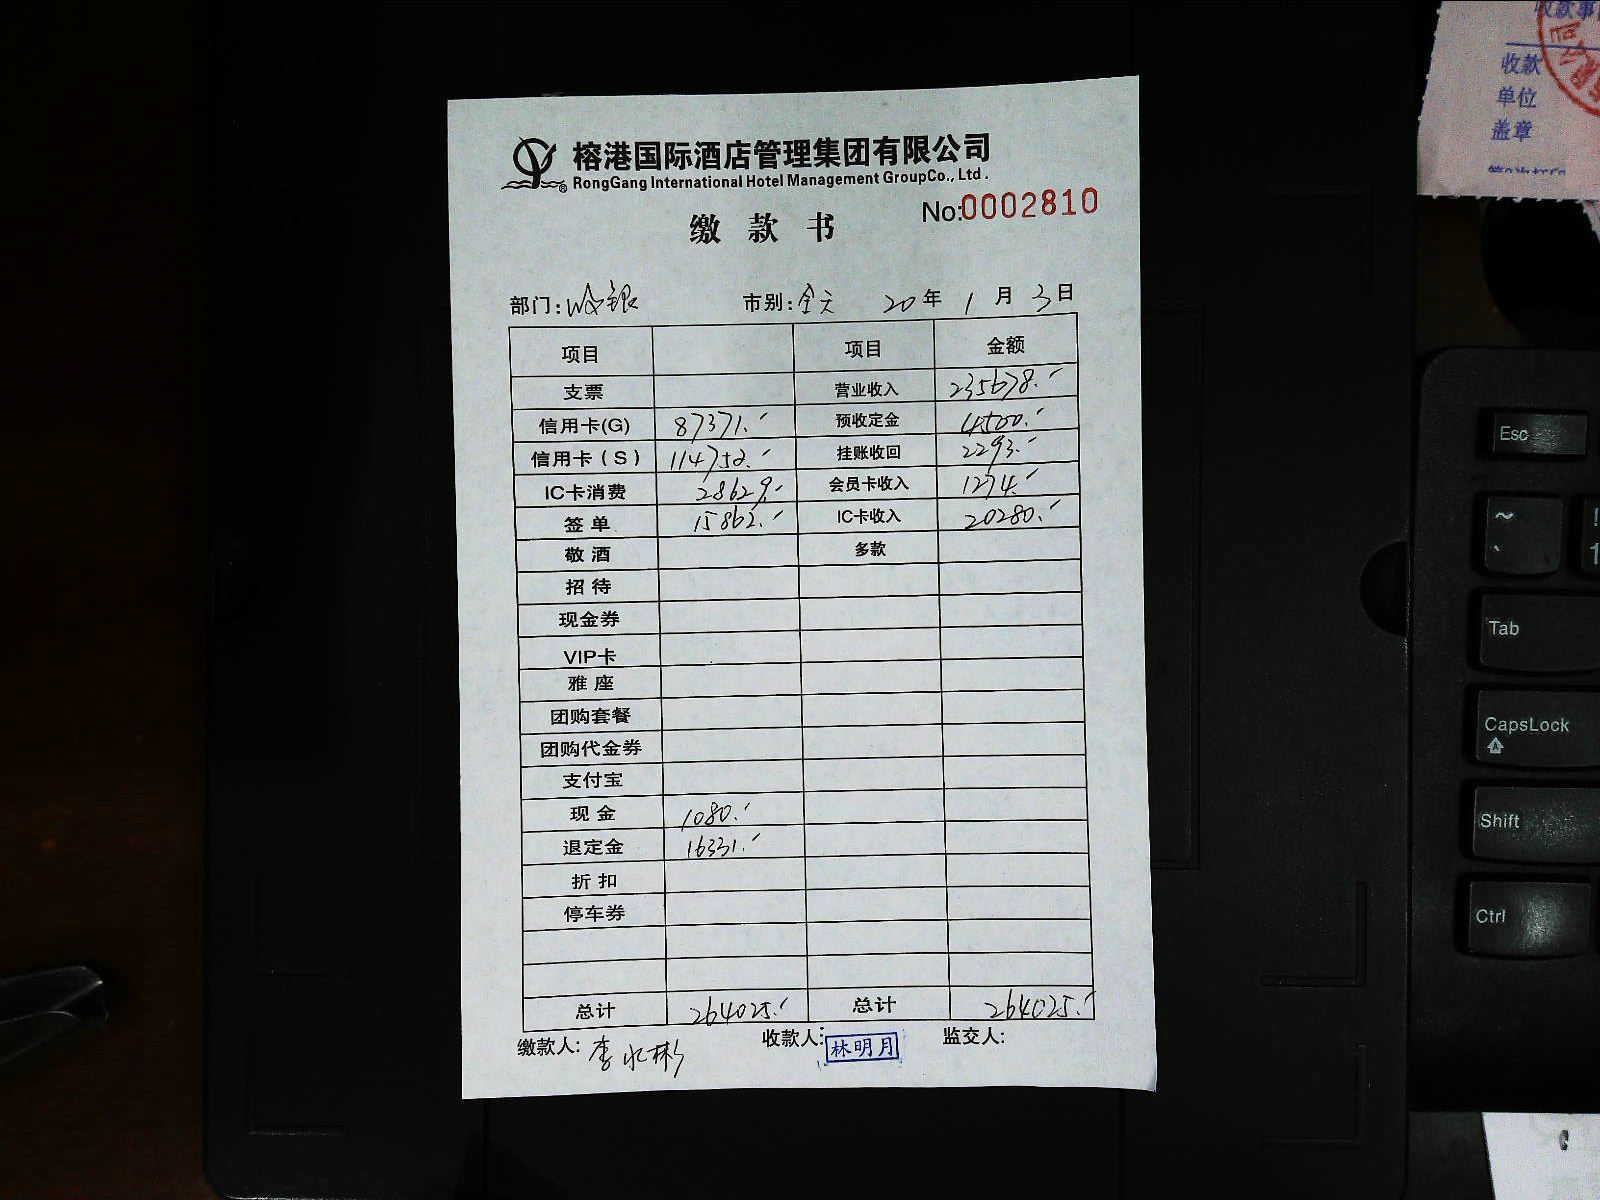 榕港国际酒店管理集团有限公司
® RongGang International Hotel Management GroupCo., Ltd.
No:0002810
缴 款 书
部门: 收银 市别: 全天 20 年 1 月 3 日
项目 项目 金额
支票 营业收入 235678.-
信用卡(G) 87371.- 预收定金 4500.-
信用卡(S) 114752.- 挂账收回 2293.-
IC卡消费 28629.- 会员卡收入 1274.-
签 单 15862.- IC卡收入 20280.-
敬 酒 多款
招 待
现金券
VIP卡
雅 座
团购套餐
团购代金券
支付宝
现 金 1080.-
退定金 16331.-
折 扣
停车券
总计 264025.- 总计 264025.-
缴款人: 李水彬 收款人: 林明月 监交人:
收款
单位
盖章
Esc
~
`
!
1
Tab
CapsLock
Shift
Ctrl